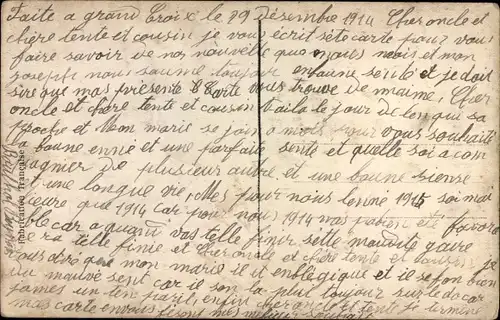 Faite a grand Croix le 29 désembre 1914 Cher oncle et
chère tente et cousin je vous écrit sète carte pour vous
faire savoir de nos nouvelle que nous mois et mon
joseph nous saume toujour en baune senté et je doi
sire que mas présente Carte vous trouve de maime, Cher
oncle et chère tente et cousin Voila le jour de lon qui sa
proche et Mon marie se join a mois pour vous souhaité
baune enné et une parfaite senté et quelle soi acom
pagner de plusieur autre et une baune
et une longue vie, Mes pour nous lenné 1915 soi
que 1914 car pour nous 1914 nas pas été favora
ble car a quant vas telle finir sette maudite gaire
ra telle finie et Cher oncle et chère tente et cousin je
vous diré que mon marie il et en blegique et il se fon bien
du mauvé sent car il son la plui toujour sur le do car
james un ten pareil enfin cher oncle et tente je termine
mas carte en vous
Fabrication française